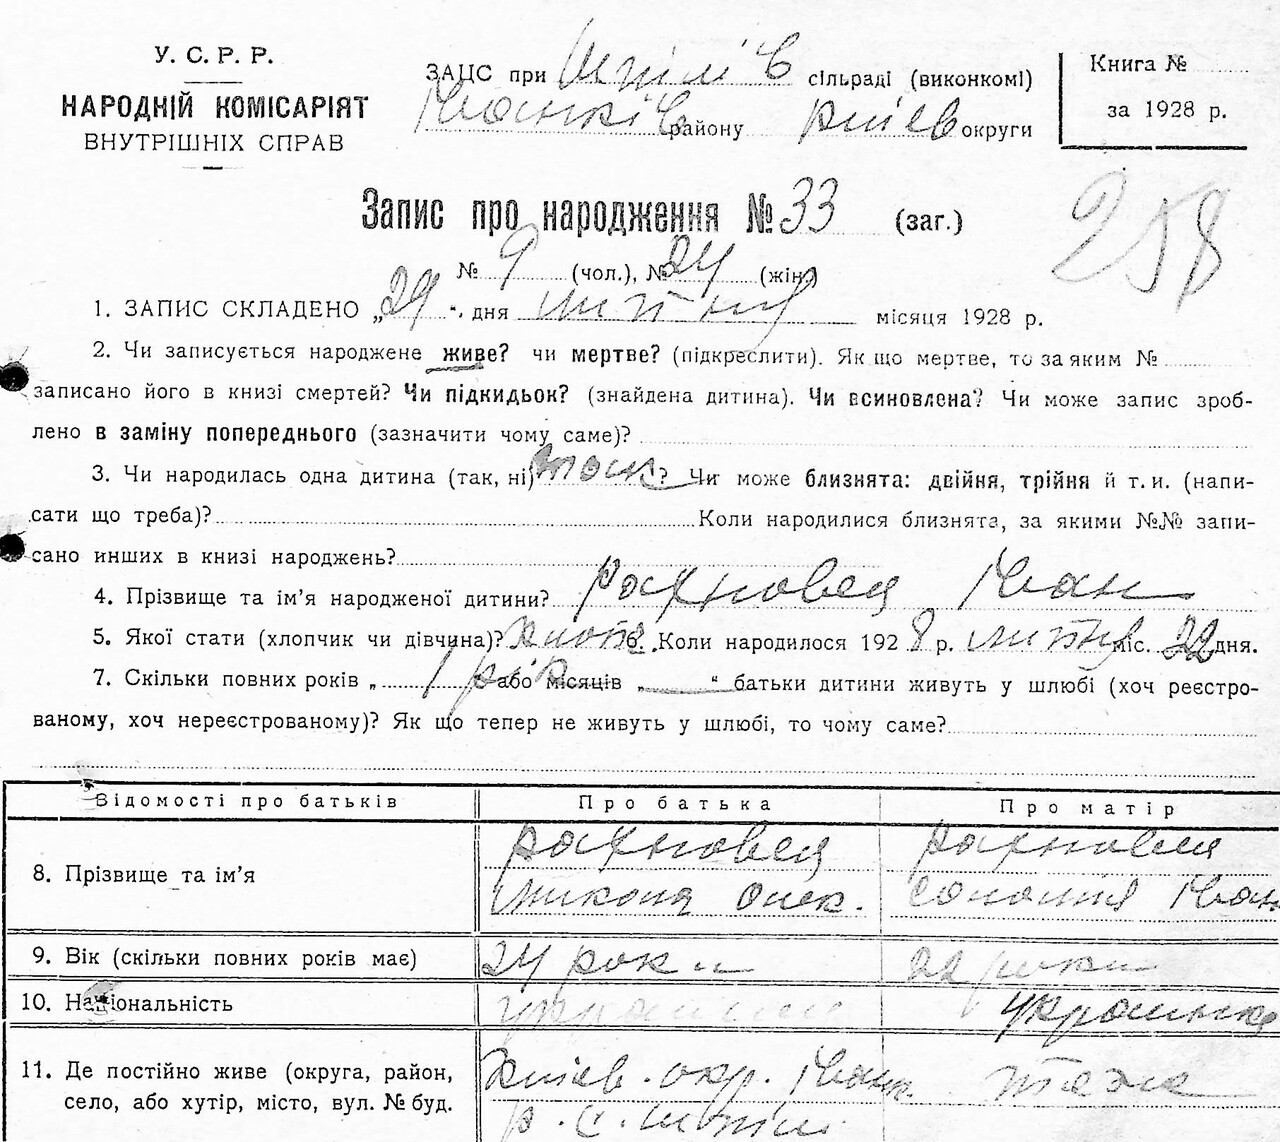 У. С. Р. Р.
НАРОДНІЙ КОМІСАРІЯТ
ВНУТРІШНІХ СПРАВ
ЗАЦС при сільраді (виконкомі)
району Київ округи
Книга №
за 1928 р.
Запис про народження № 33 (заг.)
258
№ 9 (чол.), № 24 (жін.)
1. ЗАПИС СКЛАДЕНО „29“ дня лютня місяця 1928 р.
2. Чи записується народжене живе? чи мертве? (підкреслити). Як що мертве, то за яким №
записано його в книзі смертей? Чи підкидьок? (знайдена дитина). Чи всиновлена? Чи може запис зроб-
лено в заміну попереднього (зазначити чому саме)?
3. Чи народилась одна дитина (так, ні) так? Чи може близнята: двійня, трійня й т. и. (напи-
сати що треба)? Коли народилися близнята, за якими №№ запи-
сано инших в книзі народжень?
4. Прізвище та ім’я народженої дитини? Рахновец Іван
5. Якої стати (хлопчик чи дівчина)? хлопч. Коли народилося 1928 р. лютня міс. 22 дня.
7. Скільки повних років „1 рік або місяців „—“ батьки дитини живуть у шлюбі (хоч реєстро-
ваному, хоч нереєстрованому)? Як що тепер не живуть у шлюбі, то чому саме?
Відомості про батьків Про батька Про матір
8. Прізвище та ім’я
Рахновец
Микола Олек.
Іван
9. Вік (скільки повних років має) 24 роки 22 роки
10. Національність українець українка
11. Де постійно живе (округа, район,
село, або хутір, місто, вул. № буд.
Київ. окр. Іванк. таж
р. с.